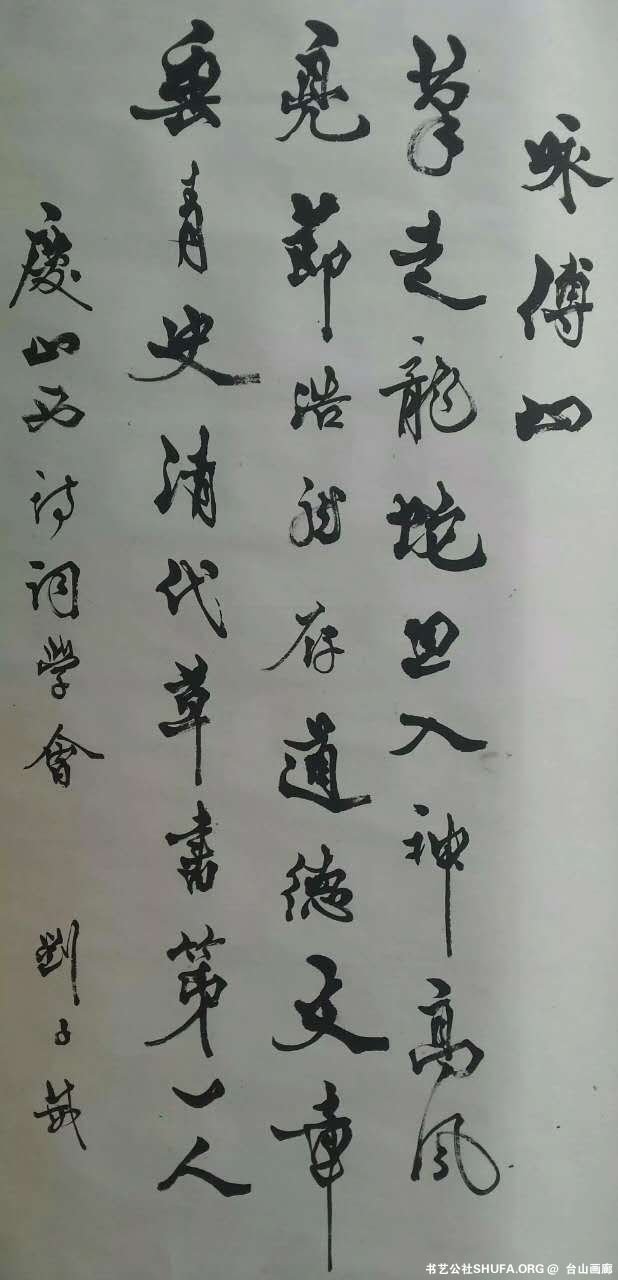 咏傅山
筆走龍蛇思入神高風
亮節浩然存道德文章
垂青史清代草書第一人
慶山西詩詞學會 劉子
书艺公社SHUFA.ORG @ 台山画廊